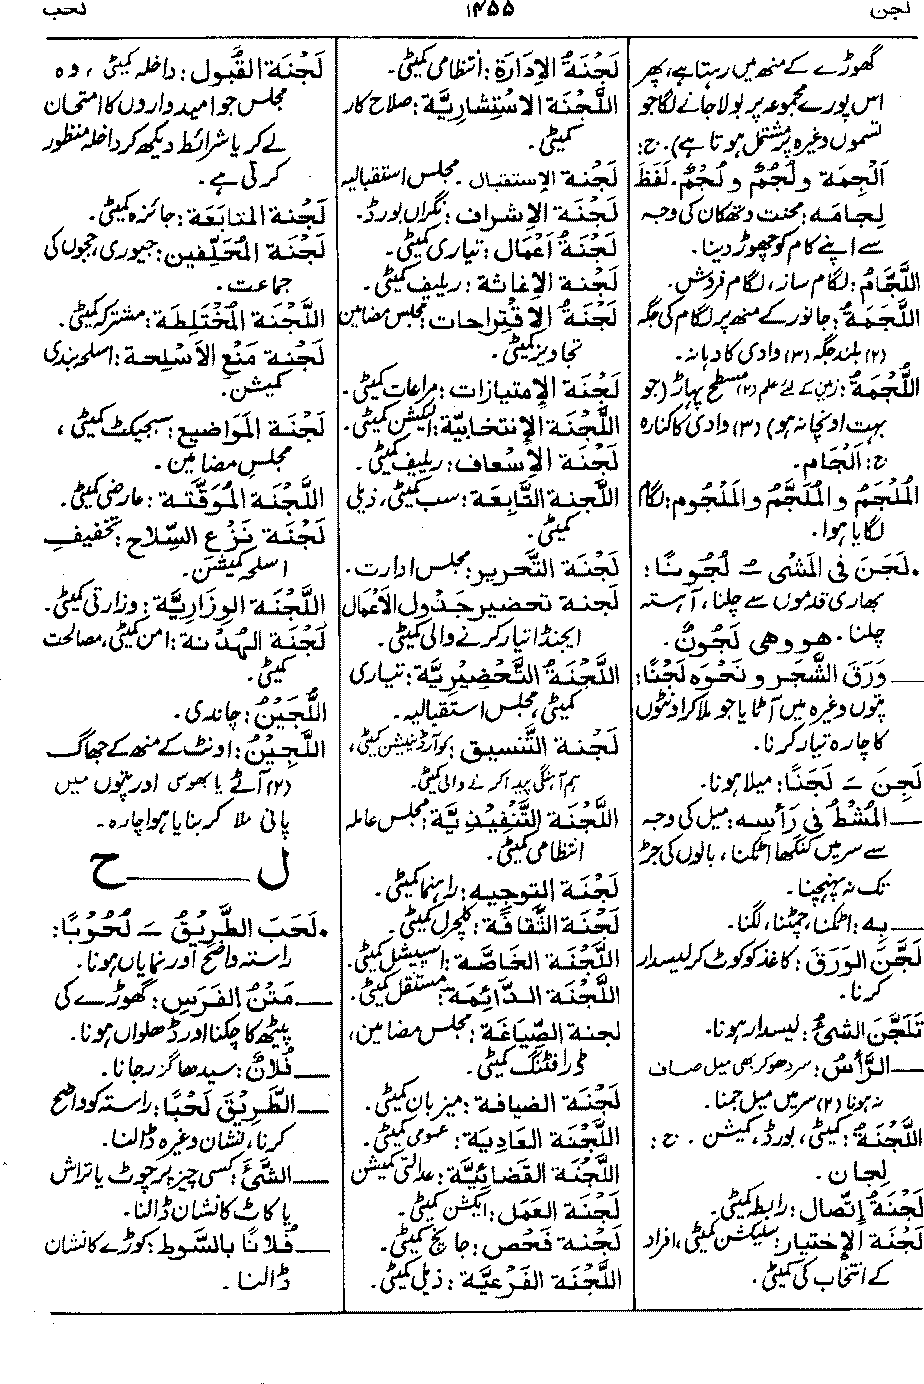 لجن
۱۴۵۵
لحب
گھوڑے کے منھ میں رہتا ہے، پھر
اس پورے مجموعہ پر بولا جانے لگا جو
تسموں وغیرہ پر مشتمل ہوتا ہے)۔ ج:
اَلْجِمَة و لُجُمٌ و لُجْمٌ. لَفَظَ
لِجامَه: محنت و تھکان کی وجہ
سے اپنے کام کو چھوڑ دینا۔
اللَّجَّامُ: لگام ساز، لگام فروش۔
اللُّجْمَةُ: جانور کے منھ پر لگام کی جگہ
(۲) بلند جگہ (۳) وادی کا دہانہ۔
اللُّجْمَةُ: زمین کے لئے علم (۲) مسطح پہاڑ (جو
بہت اونچا نہ ہو) (۳) وادی کا کنارہ
ج: اَلْجَام۔
المُلْجَمُ و المُلَجَّمُ و المَلْجُوم: لگام
لگایا ہوا۔
• لَجَنَ فی المَشْیِ ـُ لُجُونًا:
بھاری قدموں سے چلنا، آہستہ
چلنا۔ هو وهي لَجُونٌ.
ــــ وَرَقَ الشَّجَرِ و نَحْوَه لَجْنًا:
پتوں وغیرہ میں آٹا یا جو ملا کر اونٹوں
کا چارہ تیار کرنا۔
لَجِنَ ـَ لَجَنًا: میلا ہونا۔
ــــ المُشْطُ فی رَأسِه: میل کی وجہ
سے سر میں کنگھا اٹکنا، بالوں کی جڑ
تک نہ پہنچنا۔
ــــ بِه: اٹکنا، چمٹنا، لگنا۔
لَجَّنَ الوَرَقَ: کاغذ کو کوٹ کر لیسدار
کرنا۔
تَلَجَّنَ الشیءُ: لیسدار ہونا۔
ــــ الرَّأسُ: سر دھو کر بھی میل صاف
نہ ہونا (۲) سر میں میل جمنا۔
اللَّجْنَةُ: کمیٹی، بورڈ، کمیشن۔ ج:
لِجان۔
لَجْنَةُ اِتِّصال: رابطہ کمیٹی۔
لَجْنَة الاِخْتِیار: سلیکشن کمیٹی، افراد
کے انتخاب کی کمیٹی۔
لَجْنَةُ الإدَارَة: انتظامی کمیٹی۔
اللَّجْنَة الاسْتِشَارِیَّة: صلاح کار
کمیٹی۔
لَجْنَة الاِستِقبال۔ مجلس استقبالیہ
لَجْنَة الإشراف: نگراں بورڈ۔
لَجْنَةُ اَعْمَال: تیاری کمیٹی۔
لَجْنَة الإغاثة: ریلیف کمیٹی۔
لَجْنَةُ الاِقْتِراحات: مجلس مضامین
تجاویز کمیٹی۔
لَجْنَة الإمتیازات: مراعات کمیٹی۔
اللَّجْنَة الإنتخابیَّة: الیکشن کمیٹی۔
لَجْنَة الإسْعاف: ریلیف کمیٹی۔
اللَّجْنَة التَّابِعَة: سب کمیٹی، ذیلی
کمیٹی۔
لَجْنَةُ التَّحْرِیر: مجلس ادارت۔
لَجْنَة تحضیر جَدْوَل الأعْمَال
ایجنڈا تیار کرنے والی کمیٹی۔
اللَّجْنَةُ التَّحْضِیْرِیَّة: تیاری
کمیٹی، مجلس استقبالیہ۔
لَجْنَة التَّنسِیق: کوآرڈینیشن کمیٹی،
ہم آہنگی پیدا کرنے والی کمیٹی۔
اللَّجْنَة التَّنْفِیْذِیَّة: مجلس عاملہ
انتظامی کمیٹی۔
لَجْنَة التوجیه: راہنما کمیٹی۔
لَجْنَة الثَّقَافَة: کلچرل کمیٹی۔
اللَّجْنَة الخاصَّة: اسپیشل کمیٹی۔
اللَّجْنَة الدَّائِمَة: مستقل کمیٹی۔
لجنة الصِّیَاغَة: مجلس مضامین،
ڈرافٹنگ کمیٹی۔
لَجْنَة الضیافة: میزبان کمیٹی۔
اللَّجْنَة العَادِیَة: عمومی کمیٹی۔
اللَّجْنَة القَضَائِیَّة: عدالتی کمیشن
لَجْنَة العَمَل: ایکشن کمیٹی۔
لَجْنَة فَحْص: جانچ کمیٹی۔
اللَّجْنَة الفَرْعِیَّة: ذیلی کمیٹی۔
لَجْنَة القَبُول: داخلہ کمیٹی، وہ
مجلس جو امیدواروں کا امتحان
لے کر یا شرائط دیکھ کر داخلہ منظور
کرتی ہے۔
لَجْنَة المتابَعَة: جائزہ کمیٹی۔
لَجْنَة المُحَلِّفین: جیوری، ججوں کی
جماعت۔
اللَّجْنَة المُخْتَلِطَة: مشترکہ کمیٹی۔
لَجْنَة مَنْع الاَسْلِحة: اسلحہ بندی
کمیشن۔
لَجْنَة المَوَاضِیع: سبجیکٹ کمیٹی،
مجلسِ مضامین۔
اللَّجْنَة المُوَقَّتَة: عارضی کمیٹی۔
لَجْنَة نَزْع السِّلاح: تخفیفِ
اسلحہ کمیشن۔
اللَّجْنَة الوِزَارِیَّة: وزارتی کمیٹی۔
لَجْنَة الهُدْنَة: امن کمیٹی، مصالحت
کمیٹی۔
اللُّجَیْنُ: چاندی۔
اللَّجِیْنُ: اونٹ کے منھ کے جھاگ
(۲) آٹے یا بھوسی اور پتوں میں
پانی ملا کر بنایا ہوا چارہ۔
ل ــــــ ح
• لَحَبَ الطَّرِیْقُ ـَ لُحُوْبًا:
راستہ واضح اور نمایاں ہونا۔
ــــ مَتْنُ الفَرَسِ: گھوڑے کی
پیٹھ کا چکنا اور ڈھلواں ہونا۔
ــــ فُلانٌ: سیدھا گزر جانا۔
ــــ الطَّرِیْقَ لَحْبًا: راستہ کو واضح
کرنا، نشان وغیرہ ڈالنا۔
ــــ الشَّیْءَ: کسی چیز پر چوٹ یا تراش
یا کاٹ کا نشان ڈالنا۔
ــــ فُلانًا بِالسَّوط: کوڑے کا نشان
ڈالنا۔